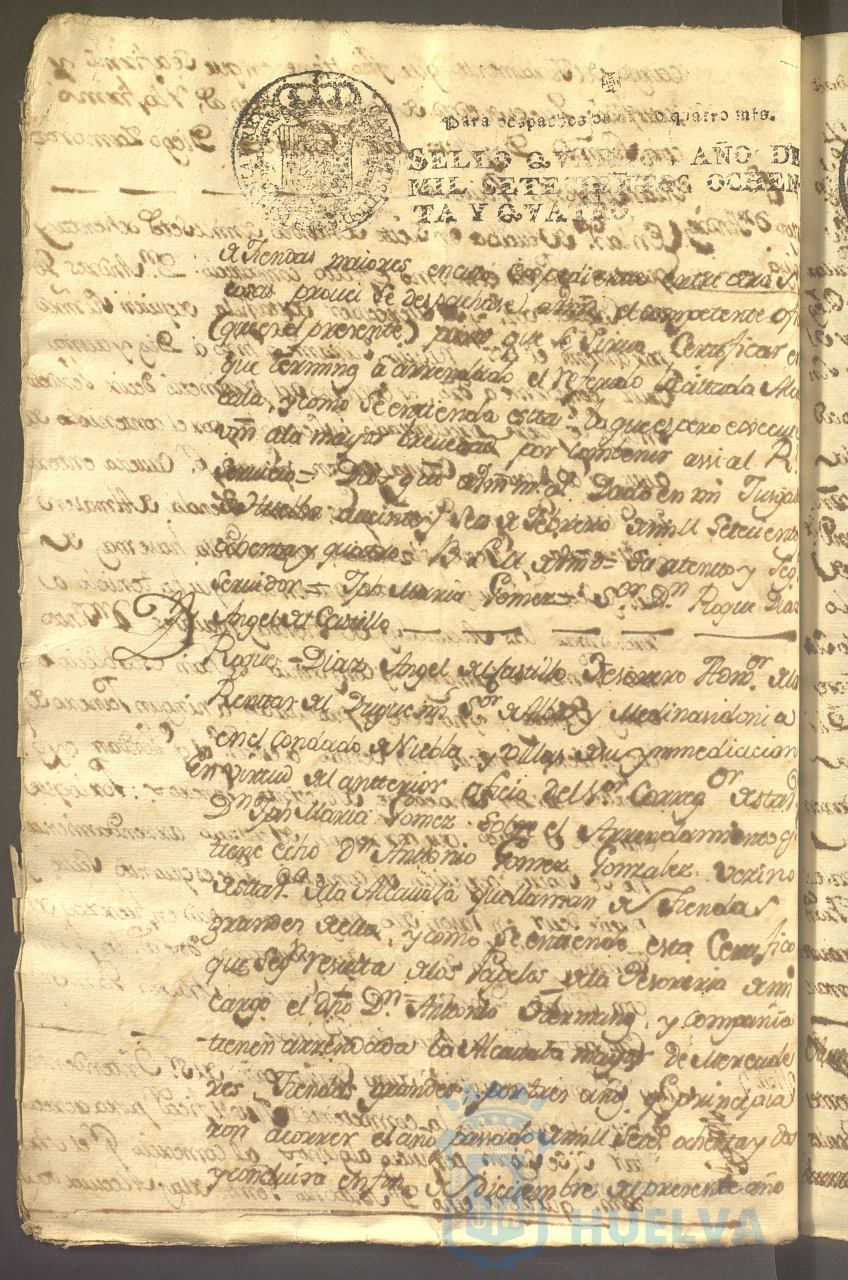 Para despachos de oficio quatro mrs.
SELLO QVARTO, AÑO DE
MIL SETECIENTOS OCHEN
TA Y QVATRO.
de Tiendas maiores, en cuio expediente entre otras
cosas provei se despachase a Vm. el competente ofi
(que es el presente) para que se sirva Certificar en
que termino a arrendado el referido la citada Alca
vala, y como se entienda esta: lo que espero
Vm a la mayor brevedad por combenir assi al R.
Servicio = Dios gue a Vm m. a. Dado en mi Juzgado
de Huelba a veinte y seis de Febrero de mill setecientos
ochenta y quatro = B. L. M. de Vmd = su atento y Seg.
Servidor = Jph Maria Gomez = S.or D.n Roque Diaz
Angel del Castillo
D.
Roque Diaz Angel del Castillo Tesorero Admor. de las
Renttas del Duque mi S.or de Alba y Medinasidonia
en el Condado de Niebla, y villas de su ynmediacion
En virtud del antterior oficio del S.or Correg.or de esta V.
D.n Jph Maria Gomez sobre el Arrendamiento q.
tiene echo D.n Antonio Gomez Gonzalez vecino
de esta V. de la Alcavala que llaman de Tiendas
grandes de ella, y como se entiende esta Certifico
que seg.n resulta de los Papeles de la Tesoreria de mi
cargo el dho D.n Antonio y compañia
tienen arrendada la Alcavala mayor de Mercade
res Tiendas grandes, por tres años q. principia
ron a correr el año pasado de mill setes. ochenta y dos
y concluira en fin de Diciembre del presente año
HUELVA